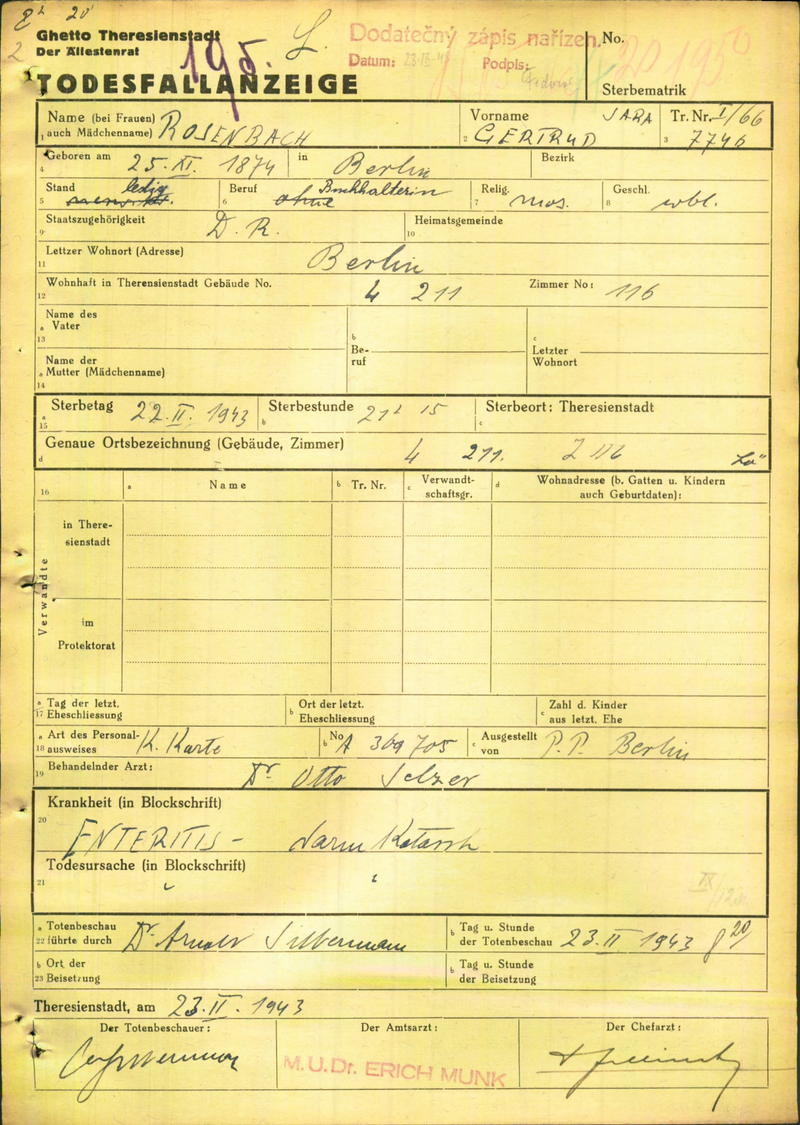 Ghetto Theresienstadt
Der Ältestenrat
TODESFALLANZEIGE
195. L.
Dodatečný zápis nařízen.
Datum: Podpis:
No.
Sterbematrik
Name (bei Frauen) auch Mädchenname) ROSENBACH
1
Vorname SARA GERTRUD
2
Tr. Nr. I/66 7746
3
Geboren am 25. XI. 1874 in Berlin Bezirk
4
Stand ledig Beruf ohne Buchhalterin Relig. mos. Geschl. wbl.
5 6 7 8
Staatszugehörigkeit D. R. Heimatsgemeinde
9 10
Lettzer Wohnort (Adresse) Berlin
11
Wohnhaft in Therensienstadt Gebäude No. L 211 Zimmer No: 116
12
Name des Vater
a 13
b Beruf
c Letzter Wohnort
Name der Mutter (Mädchenname)
a 14
Sterbetag 22. II. 1943 Sterbestunde 21h 15 Sterbeort: Theresienstadt
a 15 b c
Genaue Ortsbezeichnung (Gebäude, Zimmer) L 211. Z 116
d
16 a Name b Tr. Nr. c Verwandtschaftsgr. d Wohnadresse (b. Gatten u. Kindern auch Geburtdaten):
Verwandte
in Theresienstadt
im Protektorat
a 17 Tag der letzt. Eheschliessung b Ort der letzt. Eheschliessung c Zahl d. Kinder aus letzt. Ehe
a 18 Art des Personalausweises K. Karte b No A 369705 c Ausgestellt von P. P. Berlin
19 Behandelnder Arzt: Dr. Otto Selzer
Krankheit (in Blockschrift)
20
ENTERITIS - Darm Katarrh
Todesursache (in Blockschrift)
21
a 22 Totenbeschau führte durch Dr. Arnold Silbermann b Tag u. Stunde der Totenbeschau 23. II 1943 8 20
b 23 Ort der Beisetzung b Tag u. Stunde der Beisetzung
Theresienstadt, am 23. II. 1943
Der Totenbeschauer: Der Amtsarzt: Der Chefarzt:
M.U.Dr. ERICH MUNK